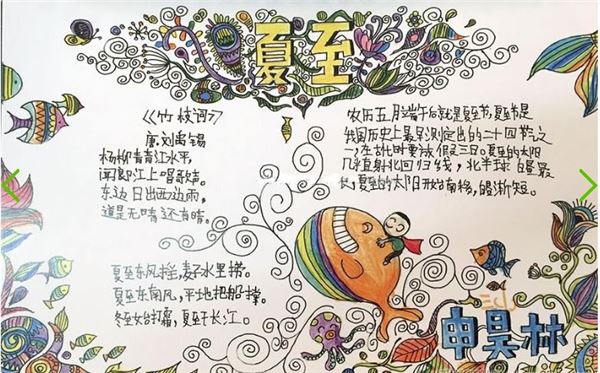 夏至
《竹枝词》
唐刘禹锡
杨柳青青江水平,
闻郎江上唱歌声。
东边日出西边雨,
道是无晴还有晴。
夏至东风摇,麦子水里捞。
夏至东南风,平地把船撑。
冬至始打霜,夏至干长江。
农历五月端午后就是夏至节,夏至节是
我国历史上最早测定出的二十四节之
一,在古代时要放假三日。夏至的太阳
几乎直射北回归线,北半球
夏至的太阳开始南移,
申昊林